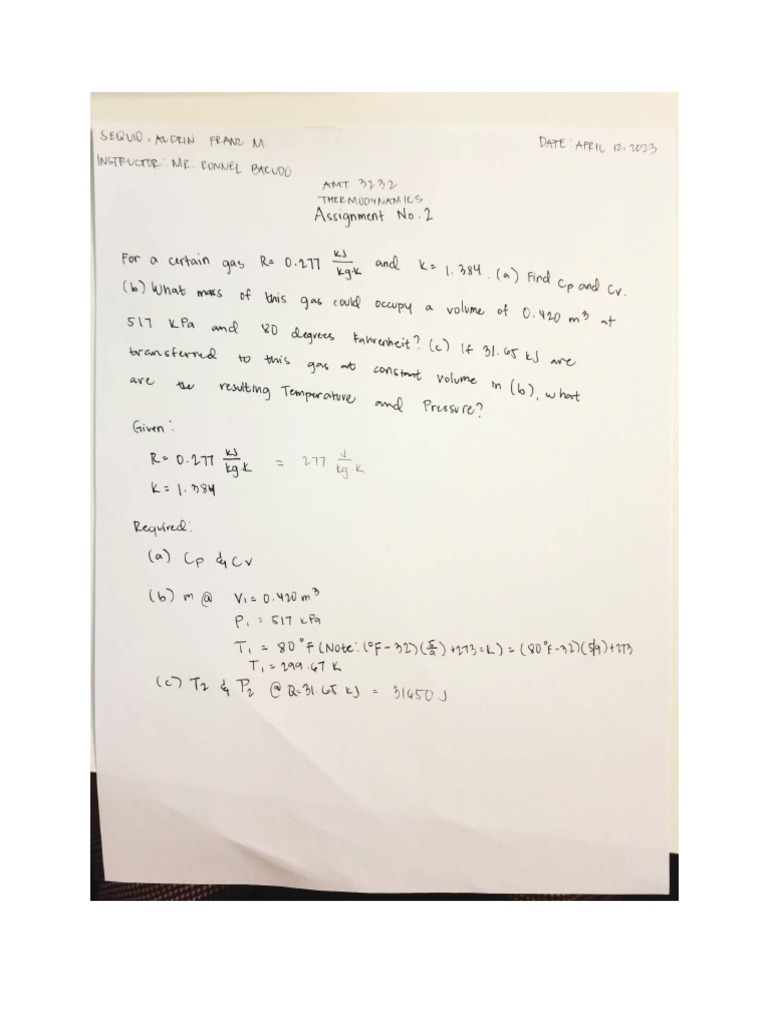 SEQUIO, ALDRIN FRANZ M.
DATE: APRIL 12, 2023
INSTRUCTOR: MR. RONNEL BACUDO
AMT 3232
THERMODYNAMICS
Assignment No. 2
For a certain gas R= 0.277 kJ/kg.K and K= 1.384. (a) Find Cp and Cv.
(b) What mass of this gas could occupy a volume of 0.420 m³ at
517 kPa and 80 degrees Fahrenheit? (c) If 31.65 kJ are
transferred to this gas at constant volume in (b), what
are the resulting Temperature and Pressure?
Given:
R= 0.277 kJ/kg.K = 277 J/kg.K
K= 1.384
Required:
(a) Cp & Cv
(b) m @ V₁= 0.420 m³
P₁ = 517 kPa
T₁ = 80°F (Note: (°F-32)(5/9)+273=K) = (80°F-32)(5/9)+273
T₁= 299.67 K
(c) T₂ & P₂ @ Q=31.65 kJ = 31650 J